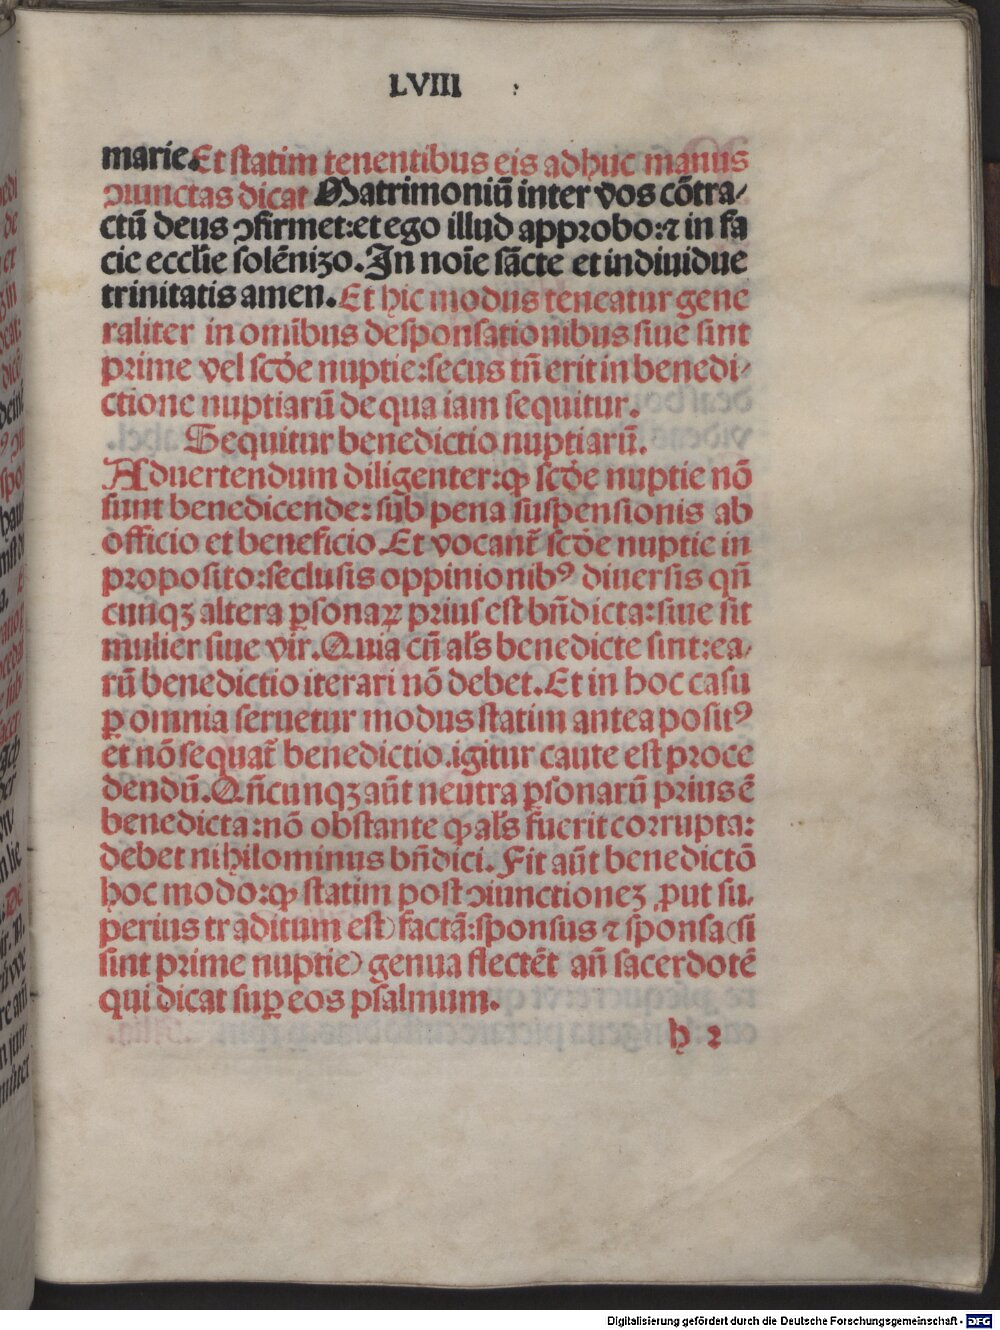 LVIII :
marie. Et statim tenentibus eis adhuc manus
ↄiunctas dicat Matrimoniū inter vos cōtra⸗
ctū deus ↄfirmet: et ego illud approbo: ⁊ in fa
cie eccl'ie solēnizo. In noīe sācte et indiuidue
trinitatis amen. Et hic modus teneatur gene
raliter in omībus desponsationibus siue sint
prime vel scd'e nuptie: secus tn̄ erit in benedi⸗
ctione nuptiarū de qua iam sequitur.
Sequitur benedictio nuptiarū.
Aduertendum diligenter: ꝙ scd'e nuptie nō
sunt benedicende: sub pena suspensionis ab
officio et beneficio Et vocant᷑ scd'e nuptie in
proposito: seclusis oppinionibꝰ diuersis qn̄
cunqꝫ altera ꝑsonaꝝ prius est bn̄dicta: siue sit
mulier siue vir. Quia cū al's benedicte sint: ea⸗
rū benedictio iterari nō debet. Et in hoc casu
ꝑ omnia seruetur modus statim antea positꝰ
et nō sequat᷑ benedictio. igitur caute est proce
dendū. Qn̄cunqꝫ aūt neutra ꝑsonarū prius ē
benedicta: nō obstante ꝙ al's fuerit corrupta:
debet nihilominus bn̄dici. Fit aūt benedictō
hoc modo: ꝙ statim post ↄiunctionez ꝓut su⸗
perius traditum est) factā: sponsus ⁊ sponsa (si
sint prime nuptie) genua flectēt an̄ sacerdotē
qui dicat suꝑ eos psalmum.
h 2
Digitalisierung gefördert durch die Deutsche Forschungsgemeinschaft - DFG